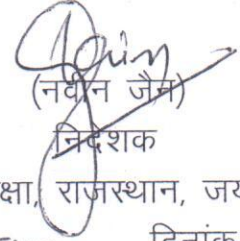 (नवीन जैन)
निदेशक
क्षा, राजस्थान, जय
दिनांक